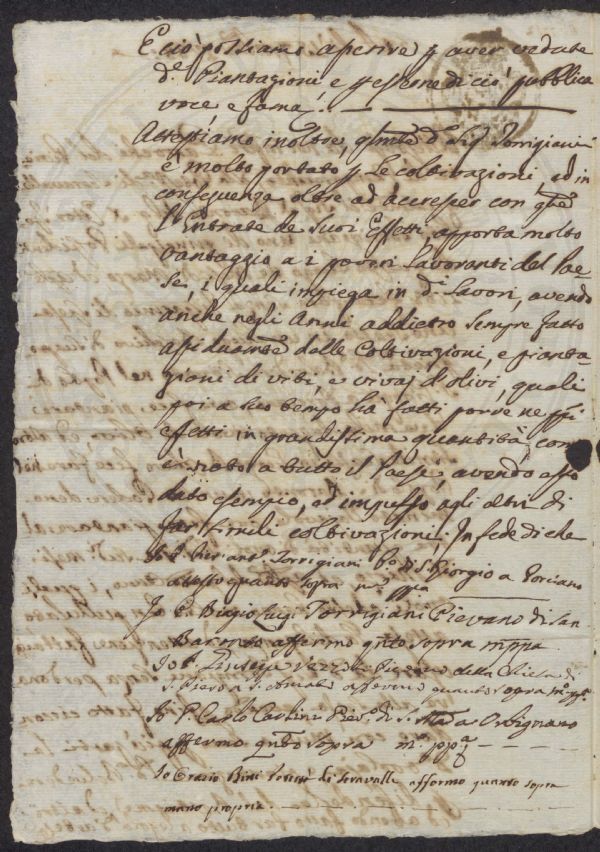 E ciò possiamo aserire p aver vedute
d.e Piantagioni e p esserne di ciò pubblica
voce, e fama.
Attestiamo inoltre, q.lmte d.o Sig.r Torrigiani
è molto portato p le coltivazioni, ed in
conseguenza oltre ad accrescer con q.te
l'Entrate de Suoi Effetti, apporta molto
vantaggio a i poveri Lavoranti del Pae-
se, i quali impiega in d.i Lavori, avendo
anche negli Anni addietro sempre fatto
assiduam.te delle Coltivazioni, e pianta-
gioni di viti, e vivaj d'olivi, quali
poi a suo tempo hà fatti porre ne ssi
effetti in grandissima quantità, com
è noto a tutto il Paese, avendo
dato esempio, ed impulso agli altri di
far simili coltivazioni; In fede di che
Io P. Pier Ant.o Torrigiani di S. Giorgio a Porciano
attesto quanto sopra m.o ppa
Io P. Biagio Luigi Torrigiani Pievano di San
Baronto affermo q.nto sopra mppa
Io P. della Chiesa di
S. affermo quanto sopra m.o pp.a
Io P. Carlo Carlini Piev.o di S. a Orbignano
affermo q.nto sopra m.o pp.a
Io Orazio Bini di Seravalle affermo quanto sopra
mano propria